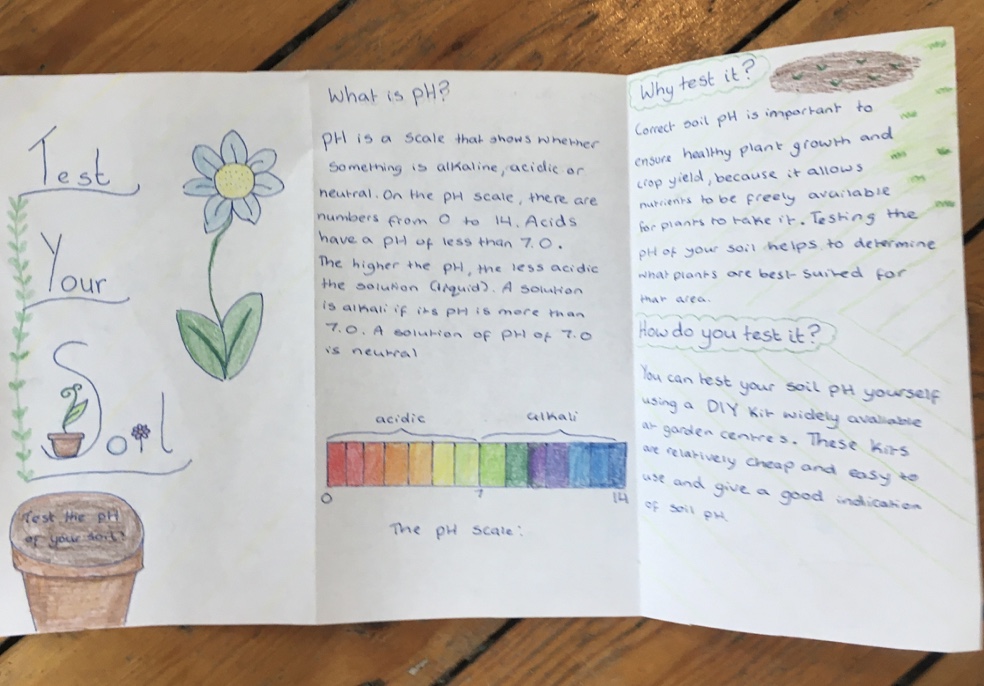 Test
Your
Soil
Test the pH
of your soil!
What is pH?
pH is a scale that shows whether
something is alkaline, acidic or
neutral. On the pH scale, there are
numbers from 0 to 14. Acids
have a pH of less than 7.0.
The higher the pH, the less acidic
the solution (liquid). A solution
is alkali if its pH is more than
7.0. A solution of pH of 7.0
is neutral
acidic alkali
0 7 14
The pH scale:
Why test it?
Correct soil pH is important to
ensure healthy plant growth and
crop yield, because it allows
nutrients to be freely available
for plants to take it. Testing the
pH of your soil helps to determine
what plants are best suited for
that area.
How do you test it?
You can test your soil pH yourself
using a DIY Kit widely available
at garden centres. These kits
are relatively cheap and easy to
use and give a good indication
of soil pH.